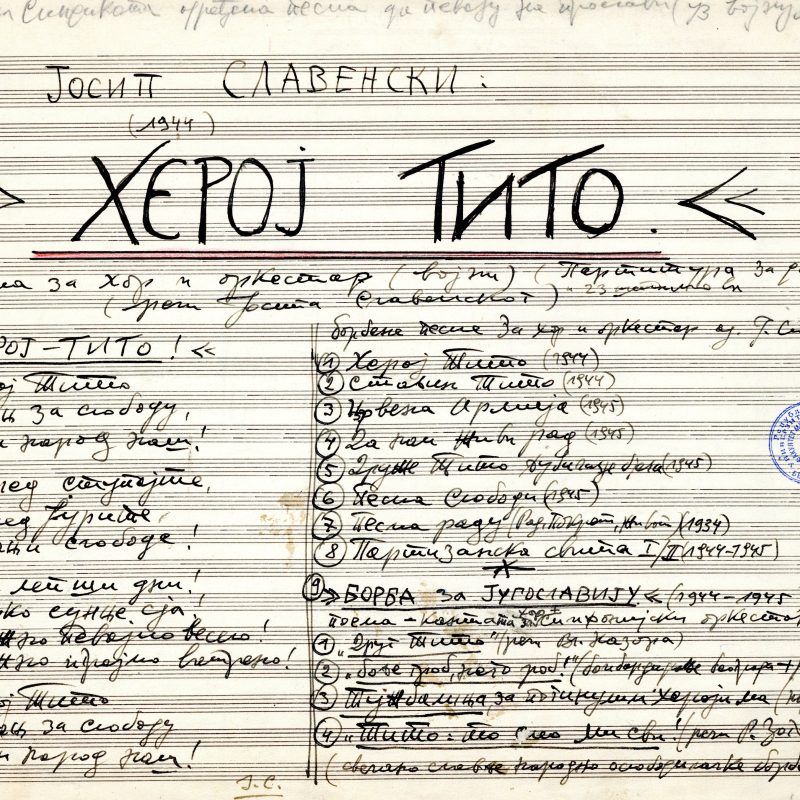 Синдиката
ЈОСИП СЛАВЕНСКИ:
(1944)
ХЕРОЈ ТИТО.
за хор и оркестар (војни) (Партитура за
(речи Јосипа Славенског)
РОЈ-ТИТО! «
ој Тито
за слободу,
народ наш!
ред ступајте,
ред јурите
слободе!
лепши дни!
сунце сја!
певајмо весело!
играјмо ватрено!
ој Тито
за слободу
народ наш!
Ј.С.
борбене песме за хор и оркестар од Ј. Сл
1 Херој Тито (1944)
2 Тито (1944)
3 Црвена Армија (1945)
4 Да нам живи рад (1945)
5 Друже Тито љубичице бела (1945)
6 Песма Слободи (1945)
7 Песма раду (1934)
8 Партизанска свита I/II (1944-1945)
9 » БОРБА за ЈУГОСЛАВИЈУ « (1944-1945
поема-кантата за хор + симфонијски оркестар
1 „Друг Тито" (речи Вл. Назора)
2 роб!"
3 Тужбалица за погинулим херојима
4 „Тито: то смо ми сви!" (речи Р. Зог
(свечано славље народно ослободилачке борбе